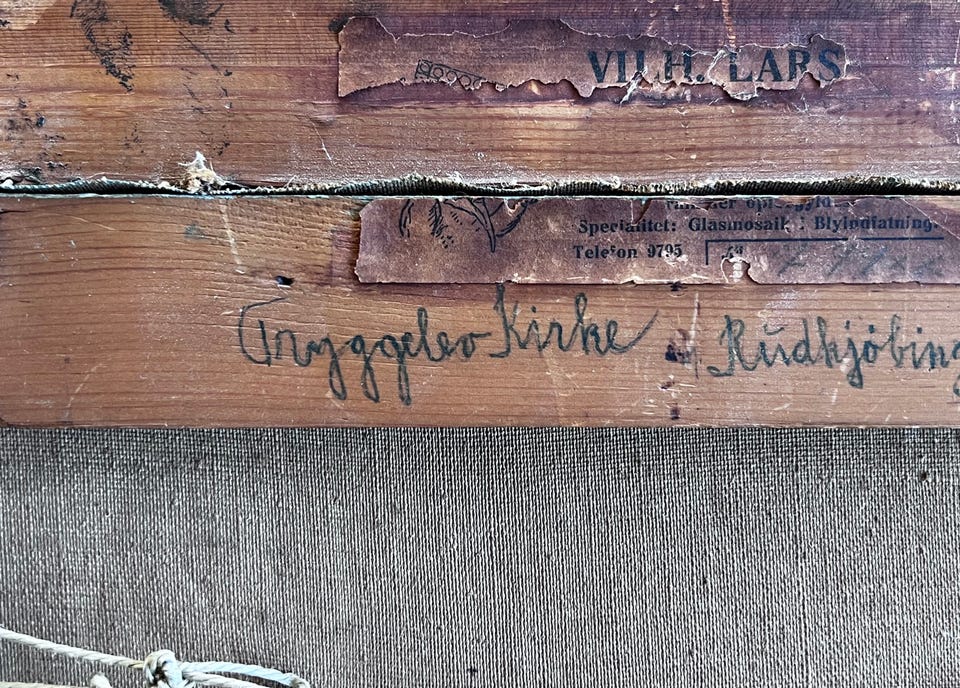 VILH. LARS
Specialitet: Glasmosaik . Blyindfatning.
Telefon 9795
Tryggelev Kirke Rudkjöbing